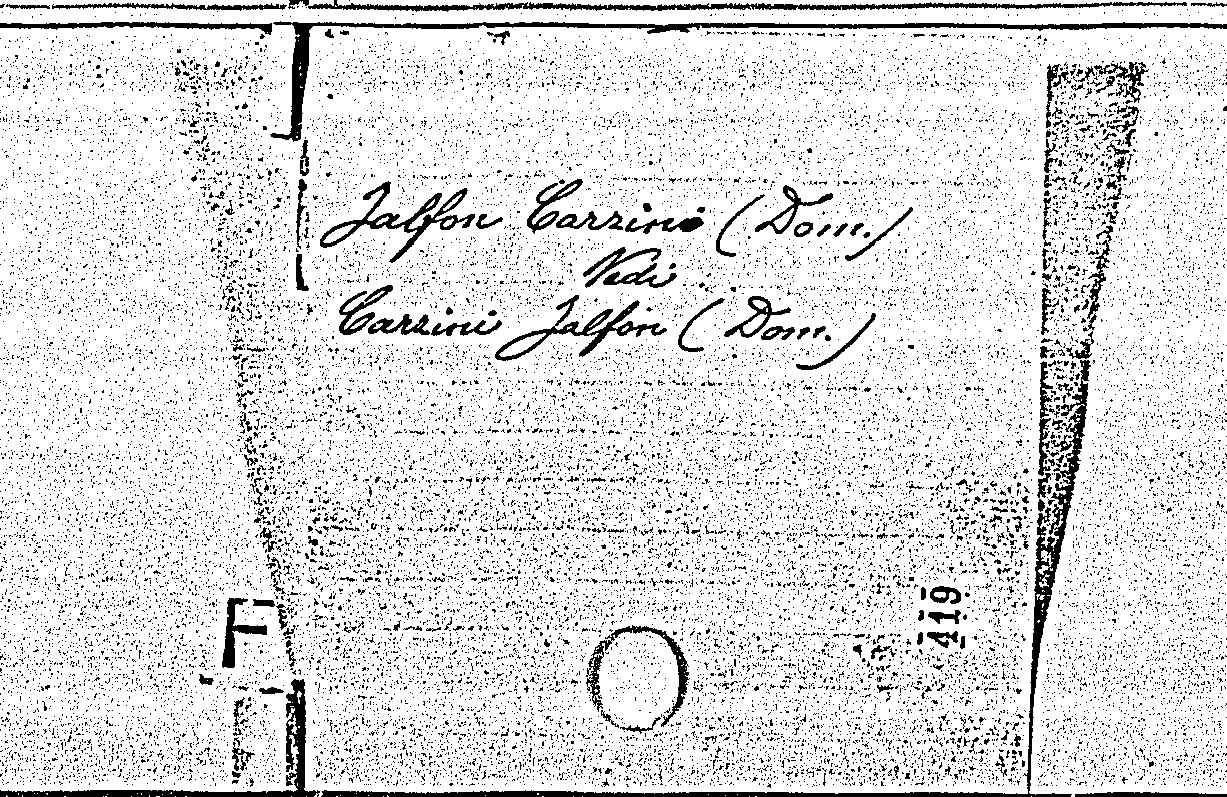 Jalfon Carzini (Dom.)
Vedi
Carzini Jalfon (Dom.)
419
F